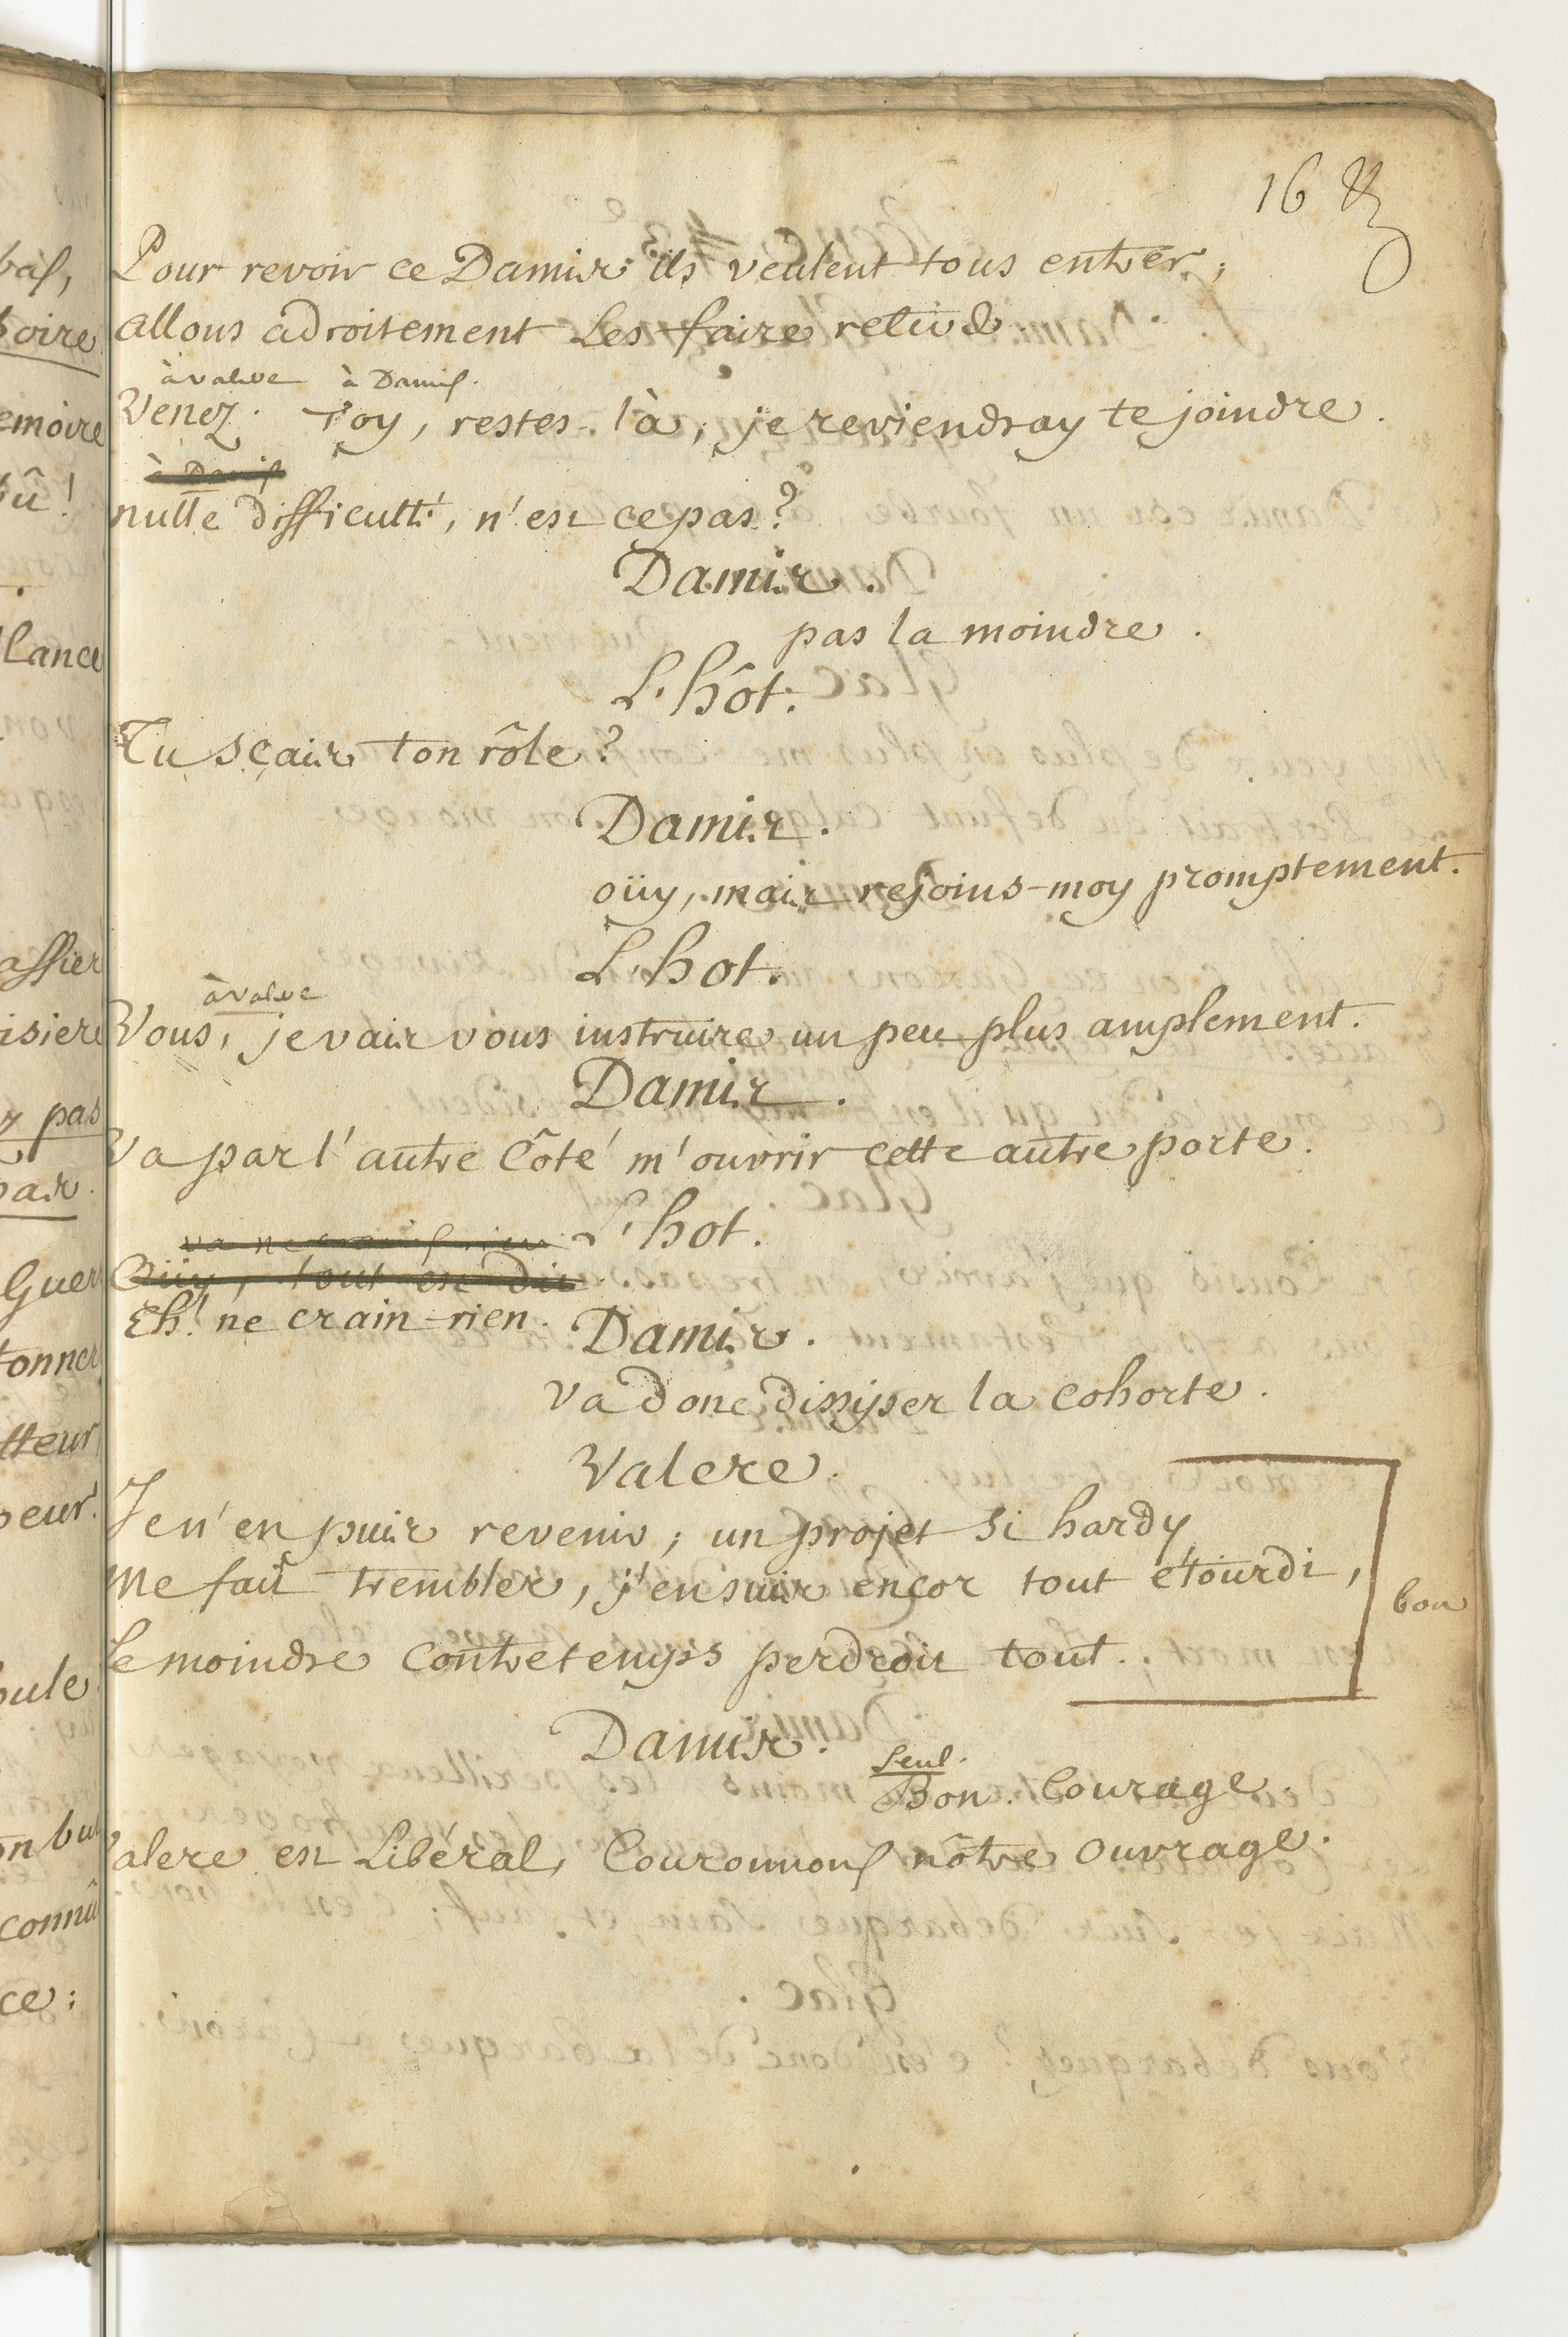 16
Pour revoir ce Damis ils veulent tous entrer;
allons adroitement les faire retirer
à valere à Damis.
Venez. Toy, restes là, je reviendray te joindre.
à Damis
nulle difficulté, n'est ce pas?
Damis.
pas la moindre.
L'hôt.
Tu sçais ton rôle?
Damis.
oüy, mais rejoins-moy promptement.
L'hot.
à valere
Vous, je vais vous instruire un peu plus amplement.
Damis.
Va par l'autre Côté m'ouvrir cette autre porte.
L'hot.
va ne crains rien
Oüy, tout est dit
Eh! ne crain rien.
Damis.
va donc dissiper la cohorte.
Valere.
Je n'en puis revenir; un projet si hardy
Me fait trembler, j'en suis encor tout étourdi,
le moindre Contretemps perdroit tout.
bon
Damis.
seul.
Bon. Courage.
Valere est Libéral, Couronnons nôtre ouvrage.
bas,
boire
emoire
bû!
lance
assier
isiere
pas
pas.
Guer
tonner
tteur
peur.
oule
on but
connû
ce;